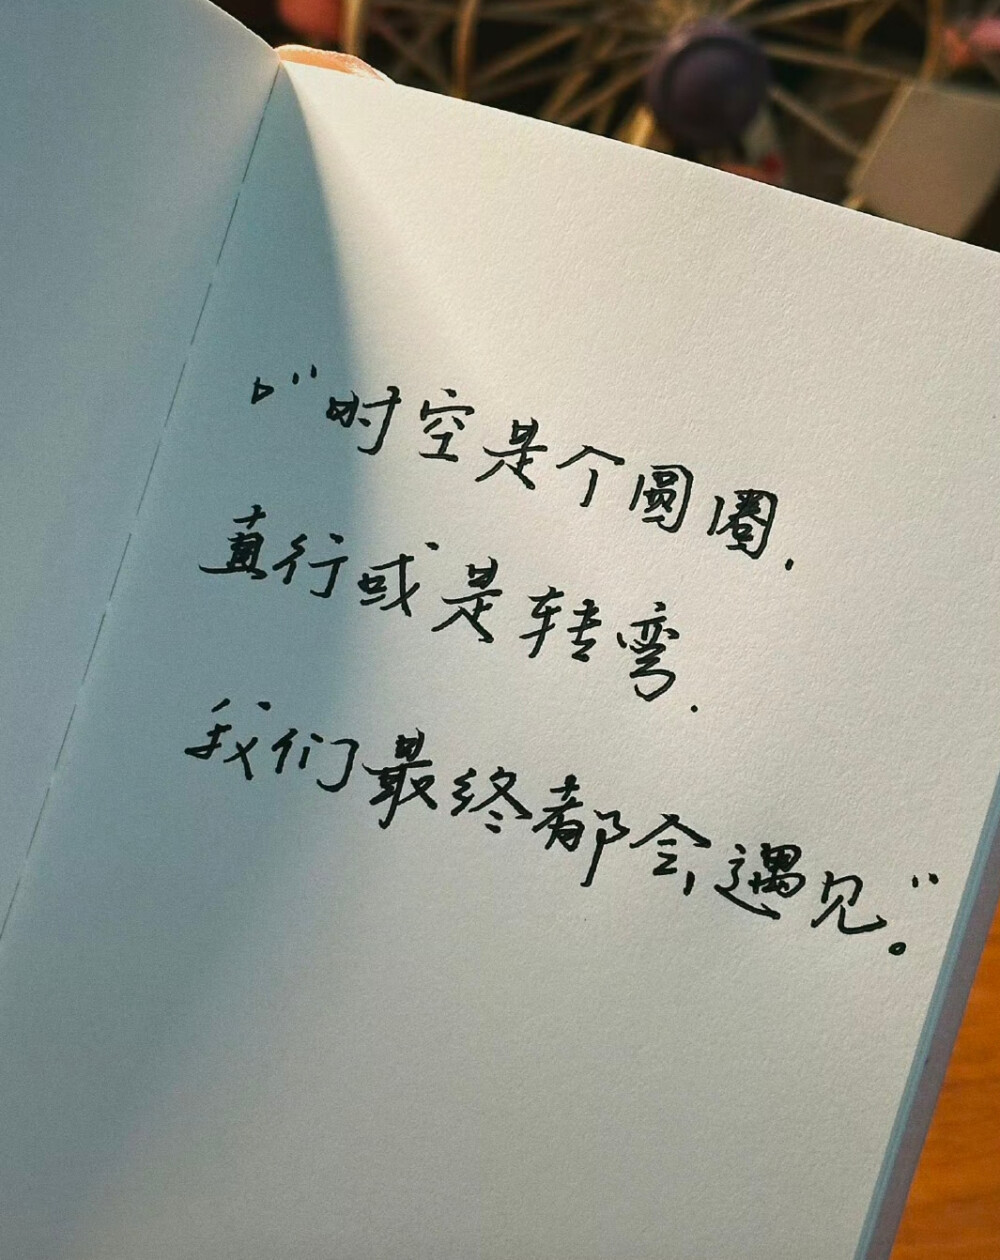 ▷“时空是个圆圈.
直行或是转弯.
我们最终都会遇见。”